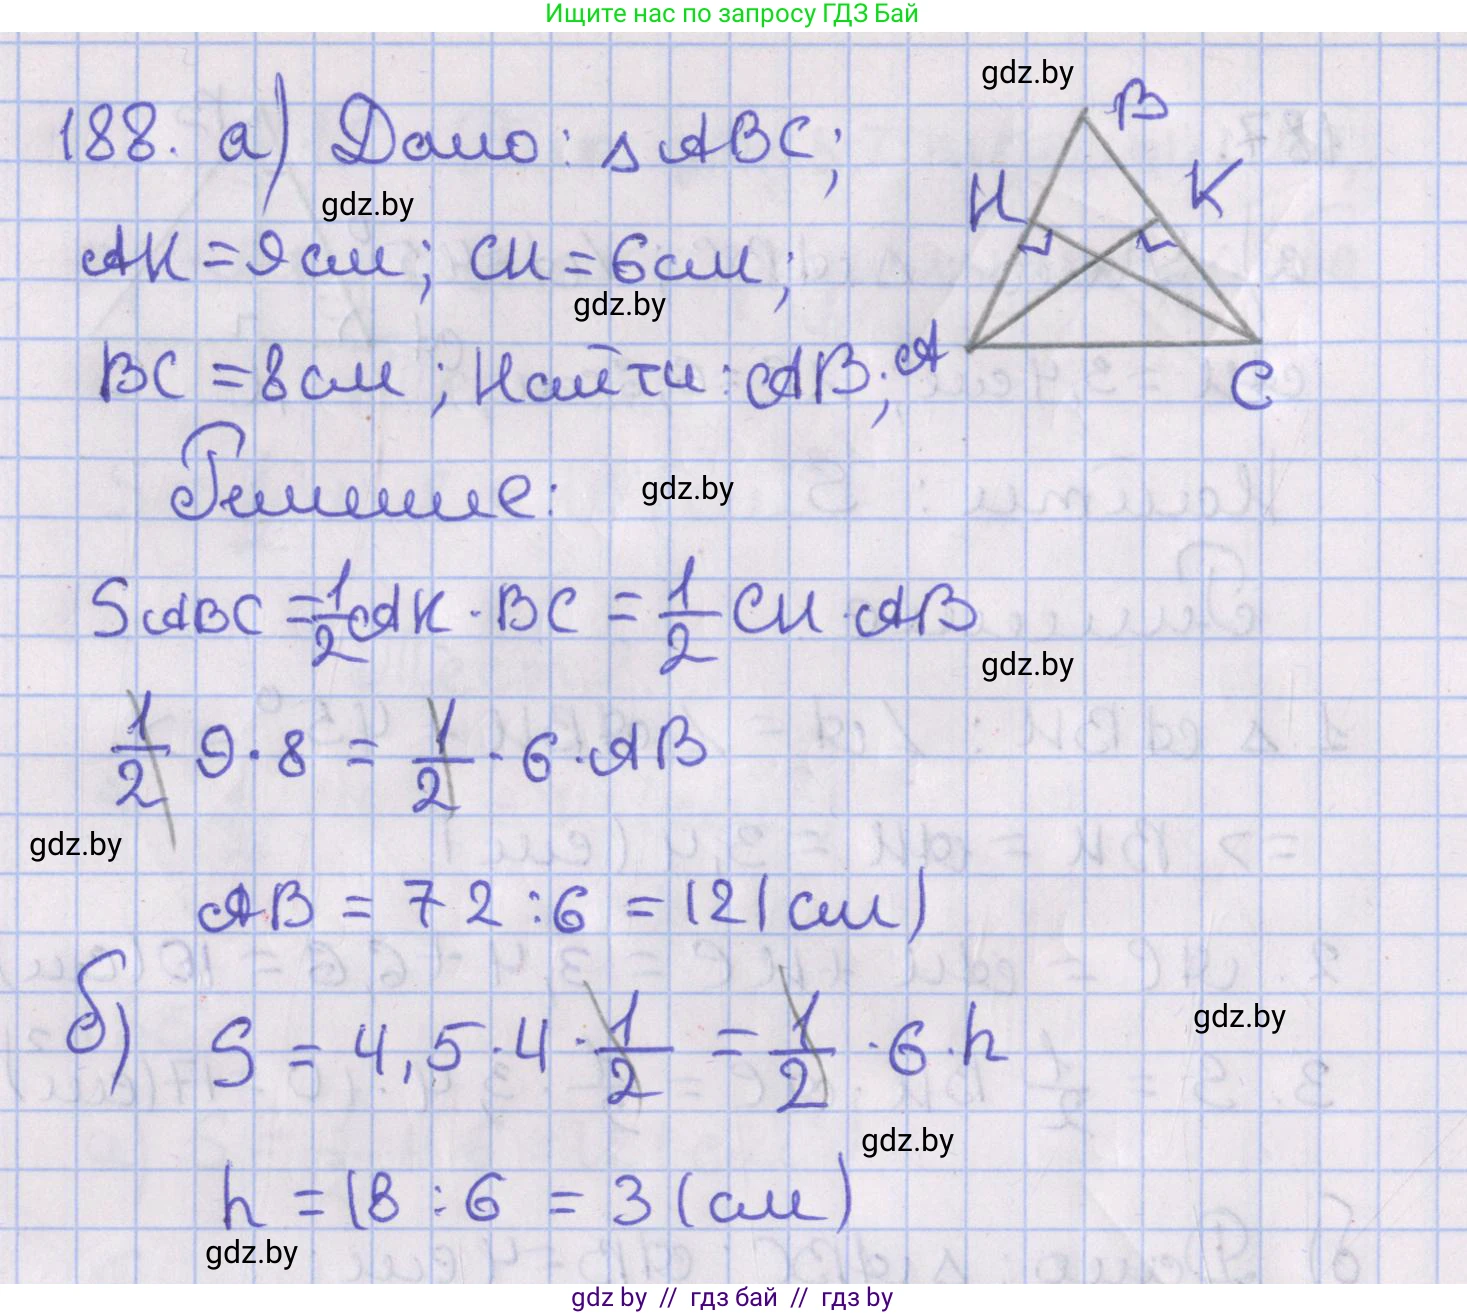 Ищите нас по запросу ГДЗ Бай
gdz.by
188. а) Дано: △ABC;
gdz.by
AK = 9 см; CH = 6 см;
gdz.by
BC = 8 см; Найти: AB;
B
H
K
A
C
Решение:
gdz.by
SABC = 1/2 AK · BC = 1/2 CH · AB
gdz.by
1/2 9 · 8 = 1/2 · 6 · AB
gdz.by
AB = 72 : 6 = 12 (см)
б) S = 4,5 · 4 · 1/2 = 1/2 · 6 · h
gdz.by
gdz.by
h = 18 : 6 = 3 (см)
gdz.by
gdz.by // гдз бай // гдз by